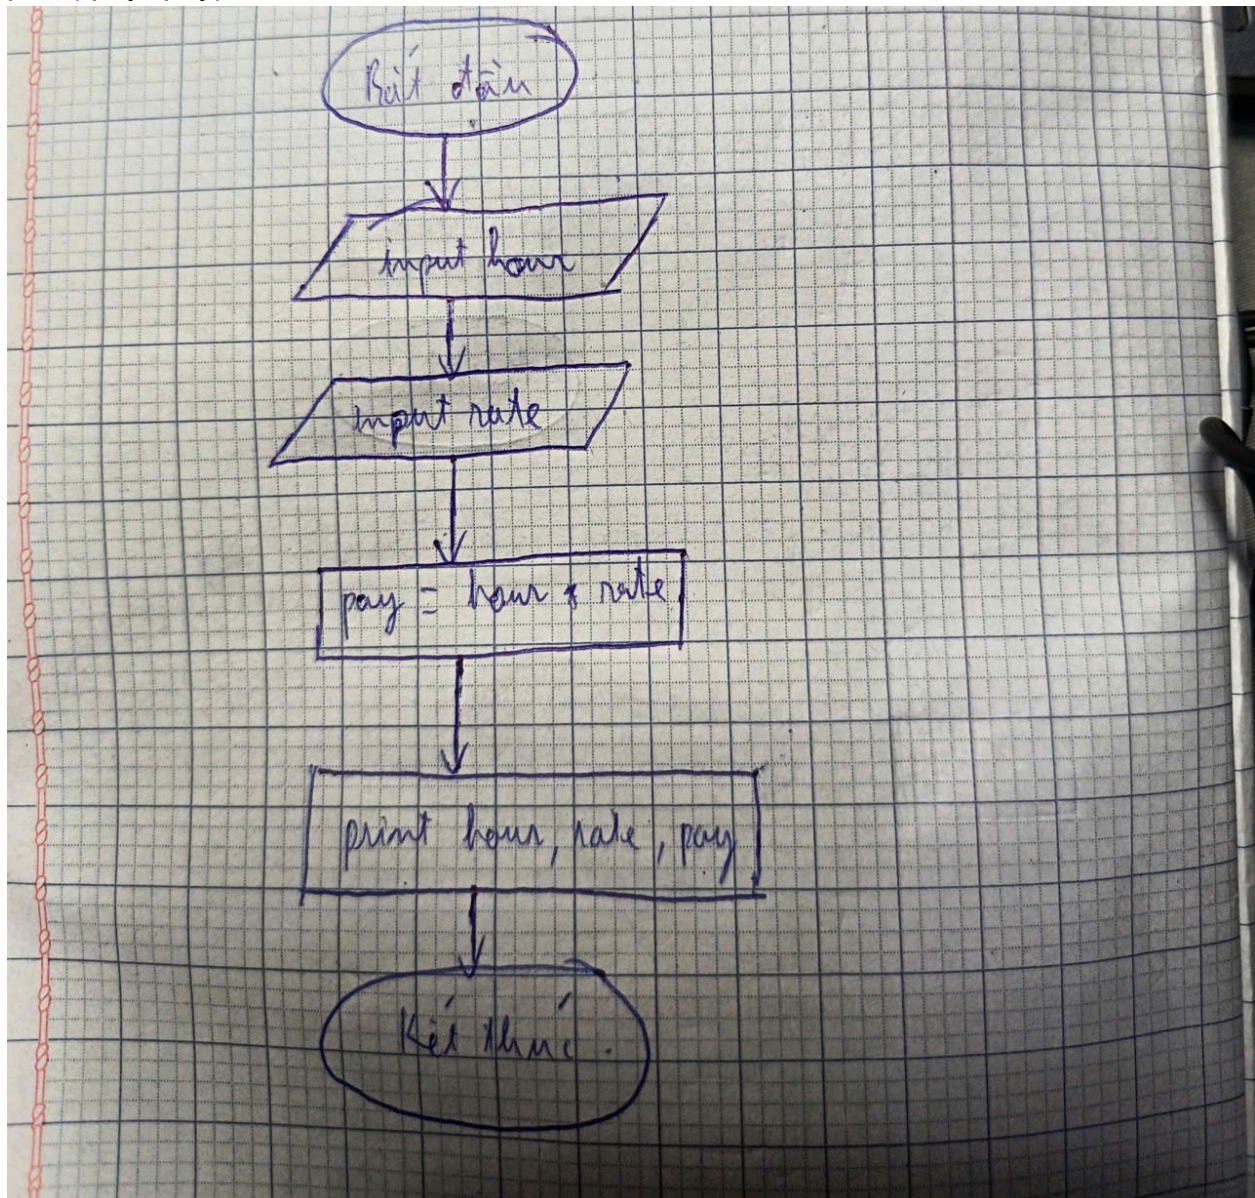 Bắt đầu
input hour
input rate
pay = hour * rate
print hour, rate, pay
Kết thúc